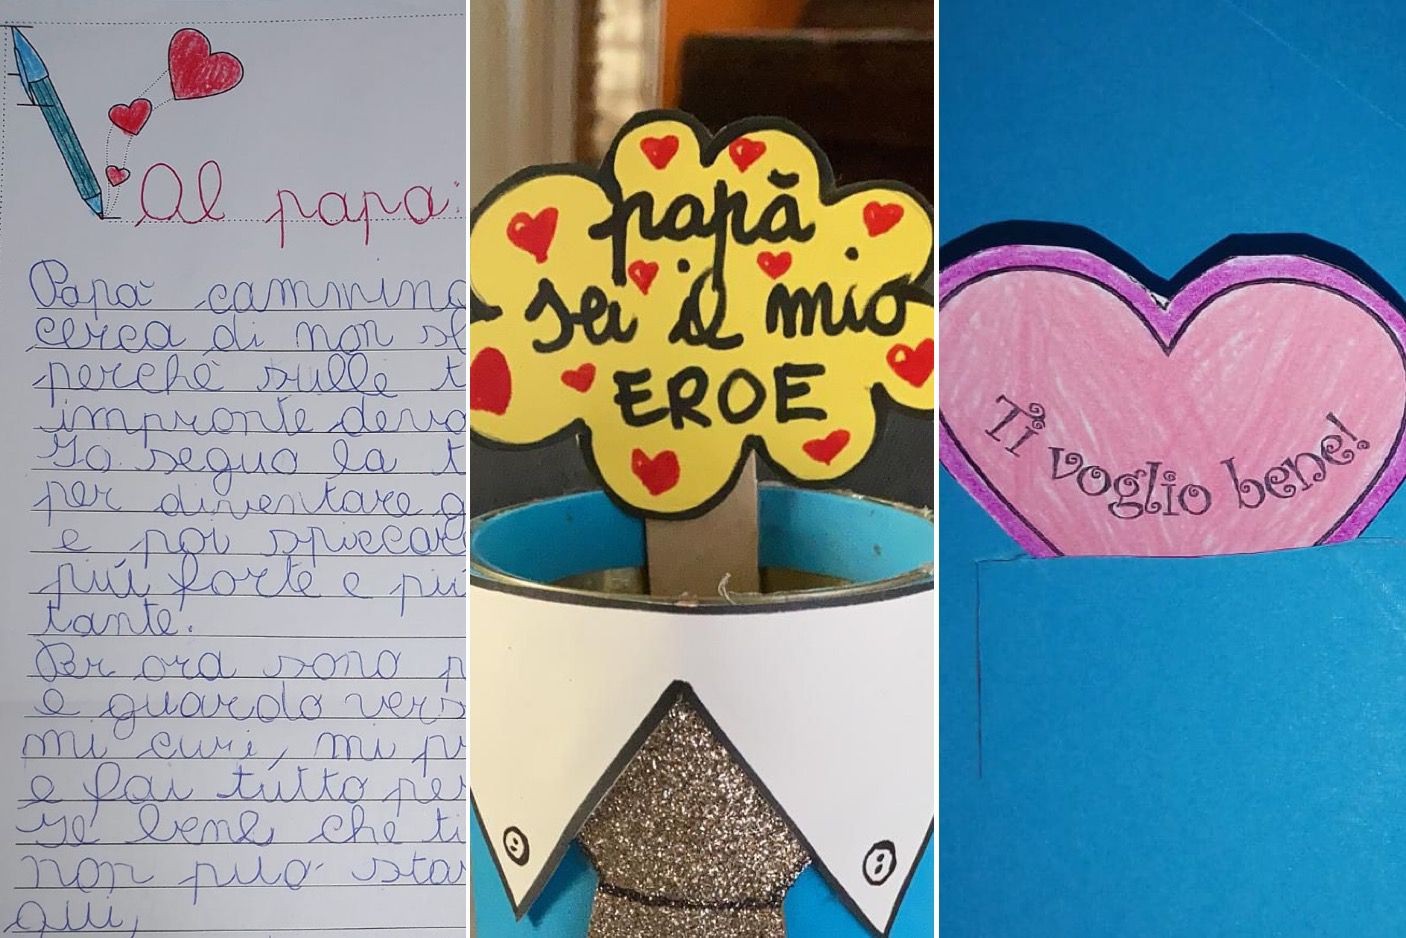 Al papà:
Papà cammina
cerca di non
perchè sulle
impronte devo
Io seguo la
per diventare
e poi spiccare
più forte e più
tante.
Per ora sono
e guardo
mi curi, mi
e fai tutto
Il bene che ti
non può
qui,
papà
sei il mio
EROE
Ti voglio bene!